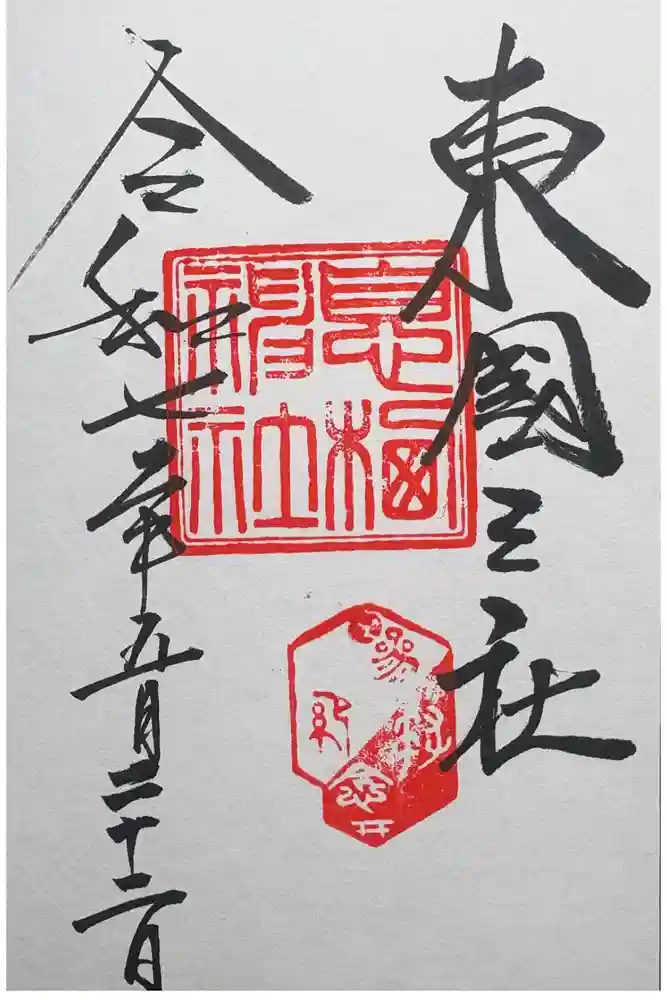 東國三社
息栖
神社
令和七年五月二十二日